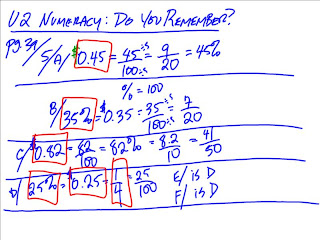 U2 NUMERACY: DO YOU REMEMBER?
pg.39
5/A/ $0.45 = 45÷5/100÷5 = 9/20 = 45%
% = 100
B/ 35% = 0.35 = 35÷5/100÷5 = 7/20
C/ $0.82 = 82/100 = 82% = 8.2/10 = 41/50
D/ 25% = $0.25 = 1/4 = 25/100 E/ is D
F/ is D